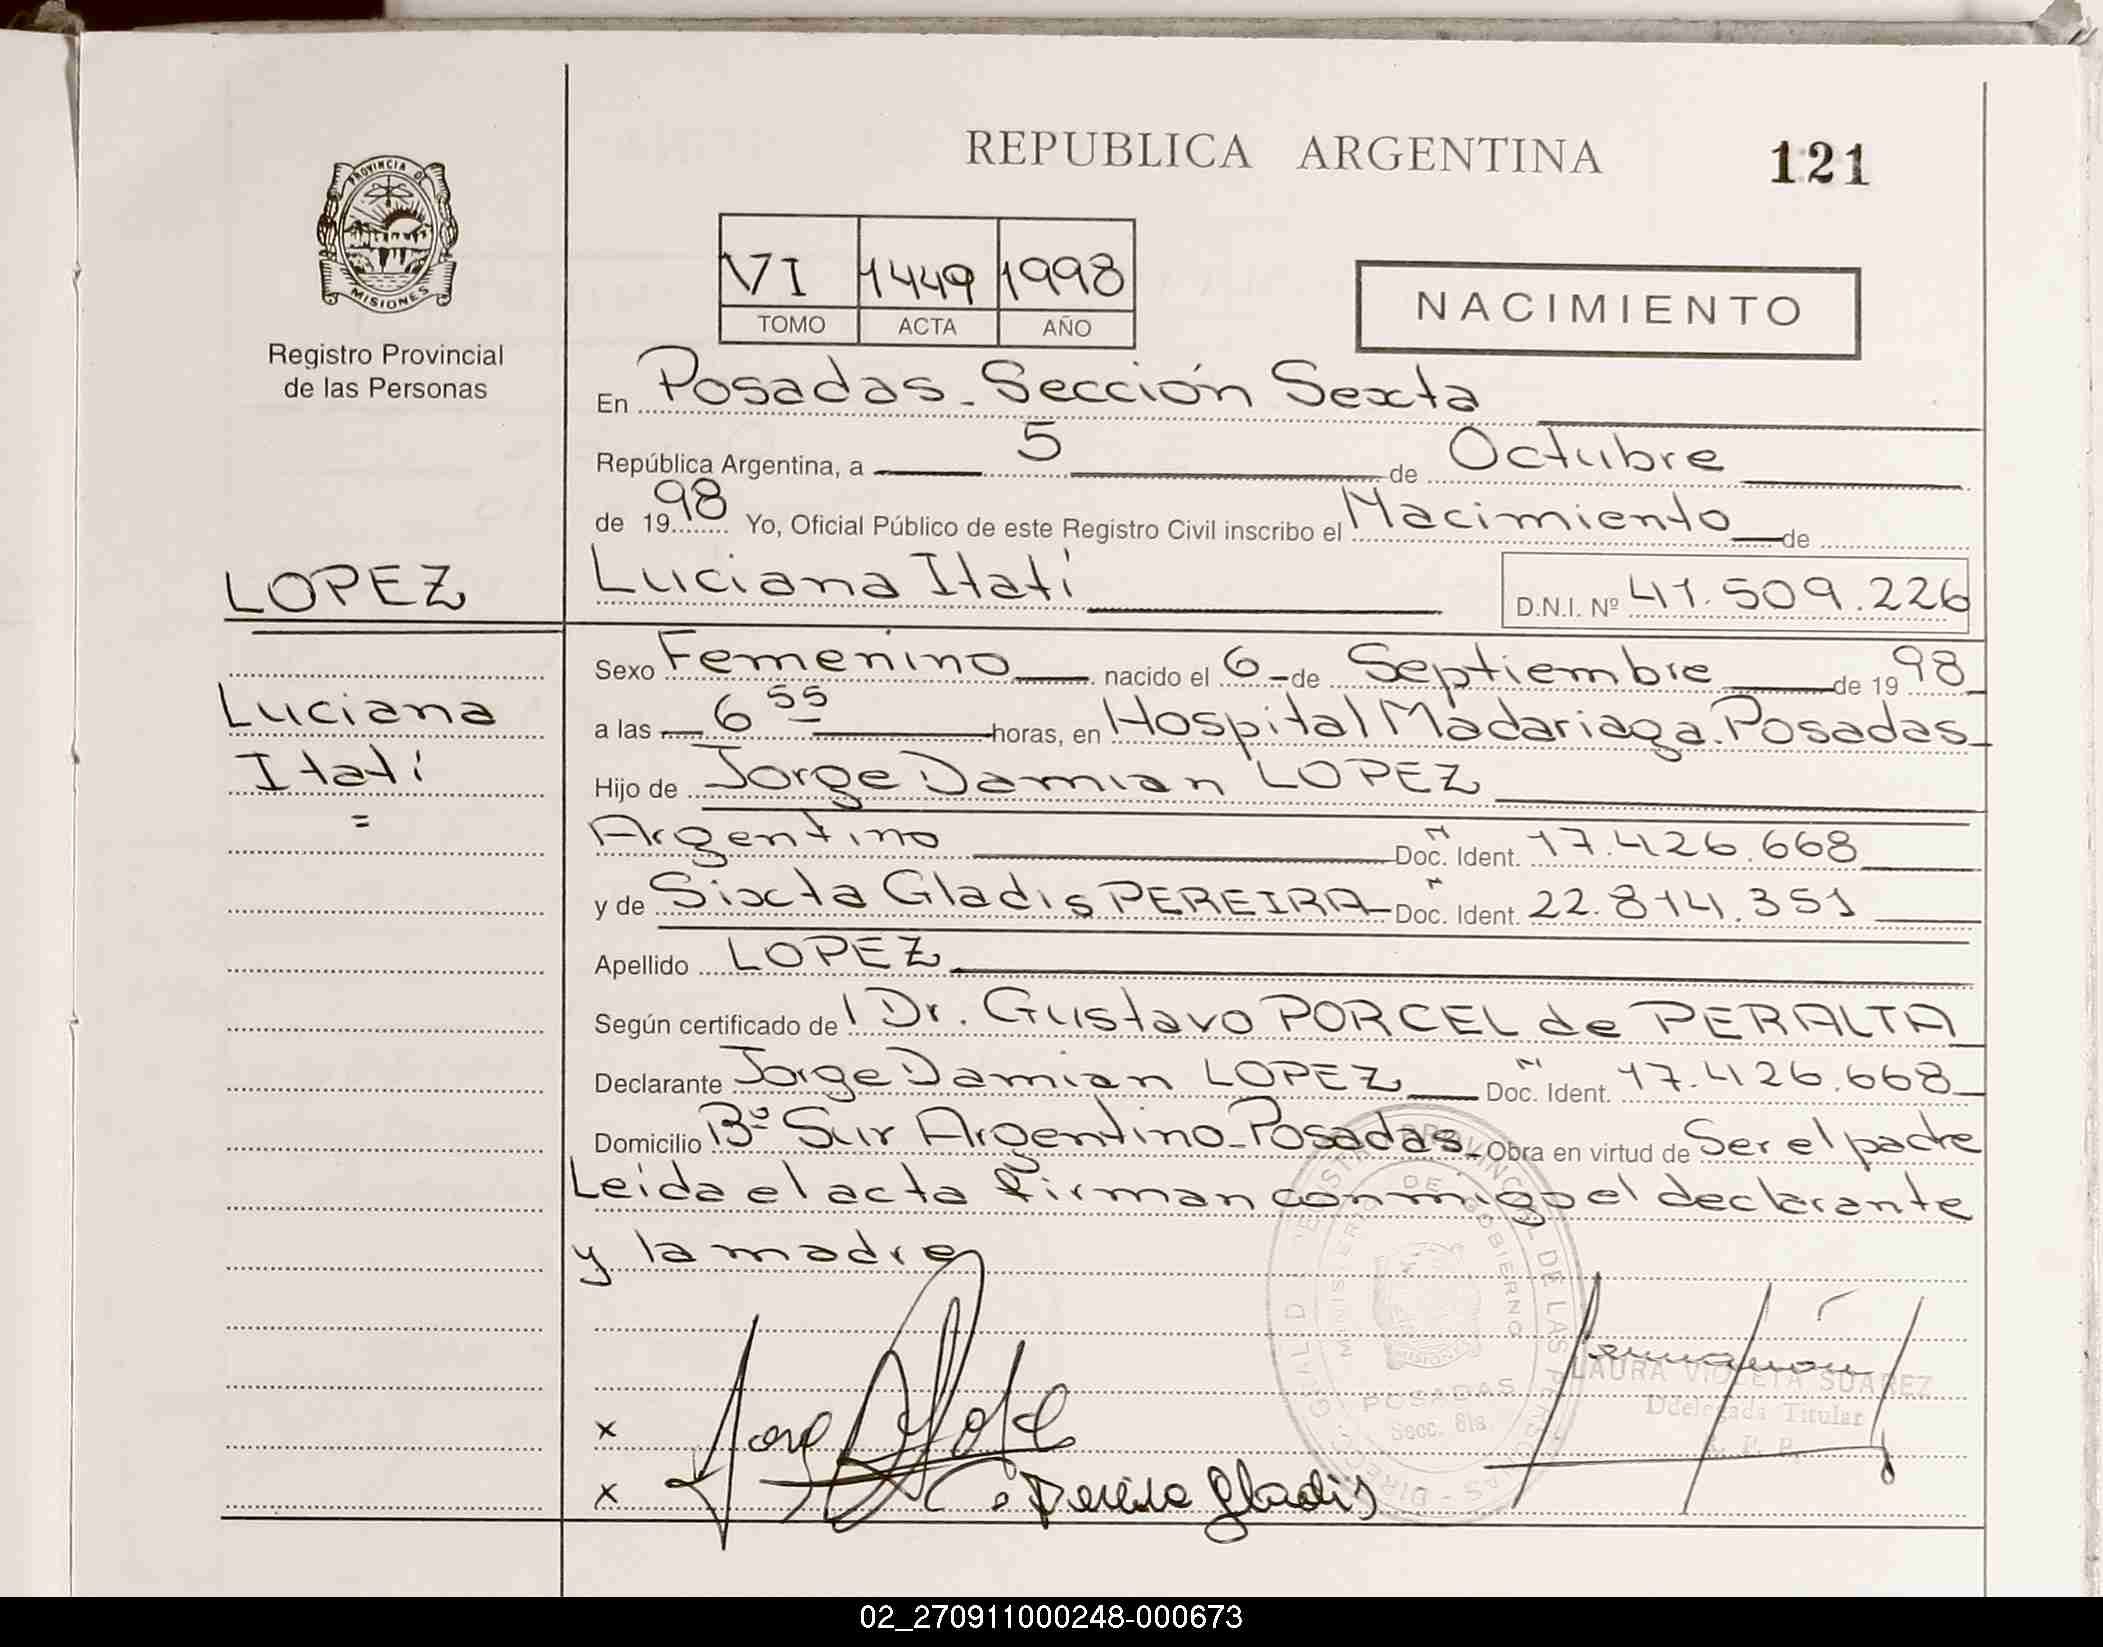 REPUBLICA ARGENTINA
121
PROVINCIA DE
MISIONES
Registro Provincial
de las Personas
VI 1449 1998
TOMO ACTA AÑO
NACIMIENTO
En Posadas - Sección Sexta
República Argentina, a 5 de Octubre
de 1998 Yo, Oficial Público de este Registro Civil inscribo el Nacimiento de
LOPEZ
Luciana Itatí
D.N.I. Nº 41.509.226
Luciana
Itatí
=
Sexo Femenino nacido el 6 de Septiembre de 1998
a las 6 55 horas, en Hospital Madariaga. Posadas
Hijo de Jorge Damian LOPEZ
Argentino Doc. Ident. 17.426.668
y de Sixta Gladis PEREIRA Doc. Ident. 22.814.351
Apellido LOPEZ
Según certificado del Dr. Gustavo PORCEL de PERALTA
Declarante Jorge Damian LOPEZ Doc. Ident. 17.426.668
Domicilio Bº Sur Argentino - Posadas - Obra en virtud de Ser el padre
Leida el acta firman conmigo el declarante
y la madre
DIRECC. GRAL D REGISTRO PROVINCIAL DE LAS PERSONAS
MINISTERIO DE GOBIERNO
MISIONES
POSADAS
Secc. 6ta.
LAURA VIOLETA SUAREZ
Ddelegada Titular
R. P. P.
x
x Pereira Gladis
02_270911000248-000673